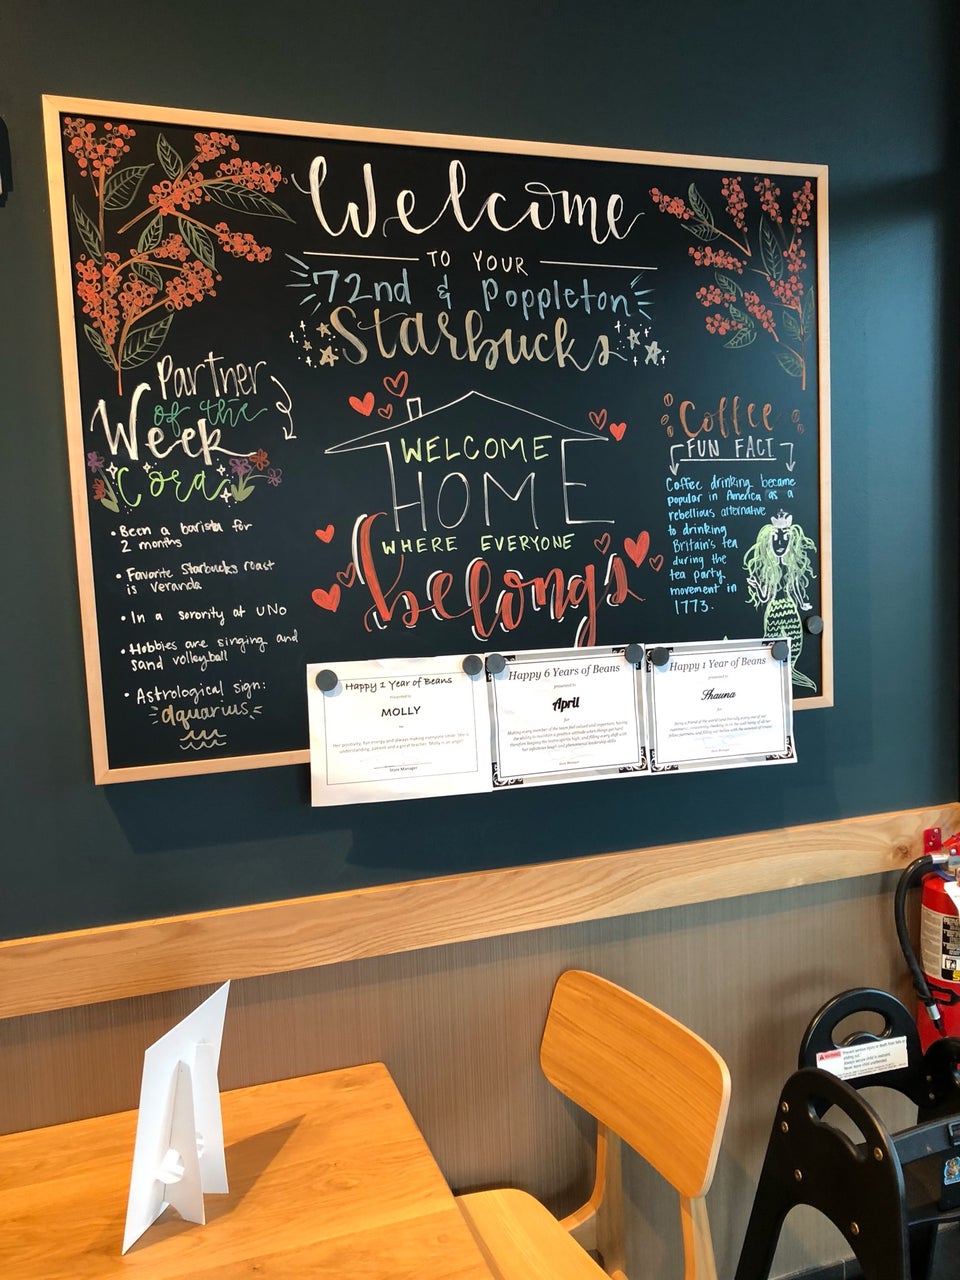 Welcome
TO YOUR
72nd & Poppleton
Starbucks
Partner
of the
Week
Cora
• Been a barista for
2 months
• Favorite Starbucks roast
is veranda
• In a sorority at UNO
• Hobbies are singing and
sand volleyball
• Astrological sign:
aquarius
WELCOME
HOME
WHERE EVERYONE
belongs
Coffee
FUN FACT
Coffee drinking became
popular in America as a
rebellious alternative
to drinking
Britain's tea
during the
tea party
movement in
1773.
Happy 1 Year of Beans
presented to
MOLLY
Store Manager
Happy 6 Years of Beans
presented to
April
for
Store Manager
Happy 1 Year of Beans
presented to
Shauna
for
Store Manager
WARNING